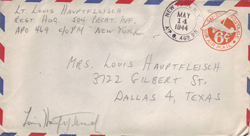 Lt. Louis Hauptfleisch
Regt Hdq. 504 Pracht Inf.
APO 469 c/o PM New York
NEW
MAY
14
1944
6¢
Mrs. Louis Hauptfleisch
3722 Gilbert St.
Dallas 4, Texas